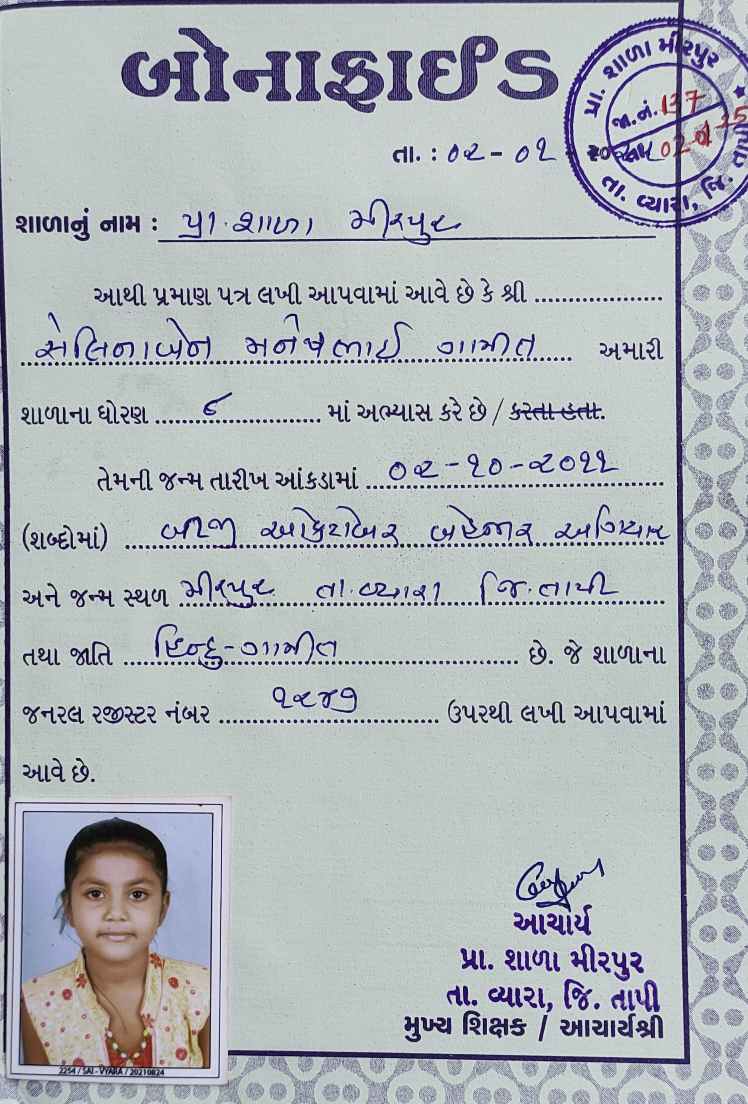 બોનાફાઈડ
પ્રા. શાળા મીરપુર
જા.નં. 137
તા. વ્યારા, જિ. તાપી
તા. : ૦૨ - ૦૧
શાળાનું નામ : પ્રા. શાળા મીરપુર
આથી પ્રમાણ પત્ર લખી આપવામાં આવે છે કે શ્રી
સેલિનાબેન મનેષભાઈ ગામીત અમારી
શાળાના ધોરણ ૬ માં અભ્યાસ કરે છે / કરતા હતા.
તેમની જન્મ તારીખ આંકડામાં ૦૨-૧૦-૨૦૧૧
(શબ્દોમાં) બીજી ઓક્ટોબર બેહજાર અગિયાર
અને જન્મ સ્થળ મીરપુર તા. વ્યારા જિ. તાપી
તથા જાતિ હિન્દુ-ગામીત છે. જે શાળાના
જનરલ રજીસ્ટર નંબર ૧૨૪૭ ઉપરથી લખી આપવામાં
આવે છે.
આચાર્ય
પ્રા. શાળા મીરપુર
તા. વ્યારા, જિ. તાપી
મુખ્ય શિક્ષક / આચાર્યશ્રી
2254 / SAI - VYARA / 20210824